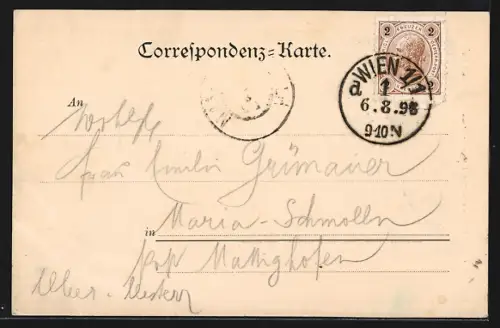 2 KREUZER 2
Correspondenz-Karte.
WIEN 1/1
d 1
6.8.98
9-10N
An
Wohlg.
Frau Emilie Grümauer
in Maria-Schmolln
Post Mattighofen
Ober-Österr